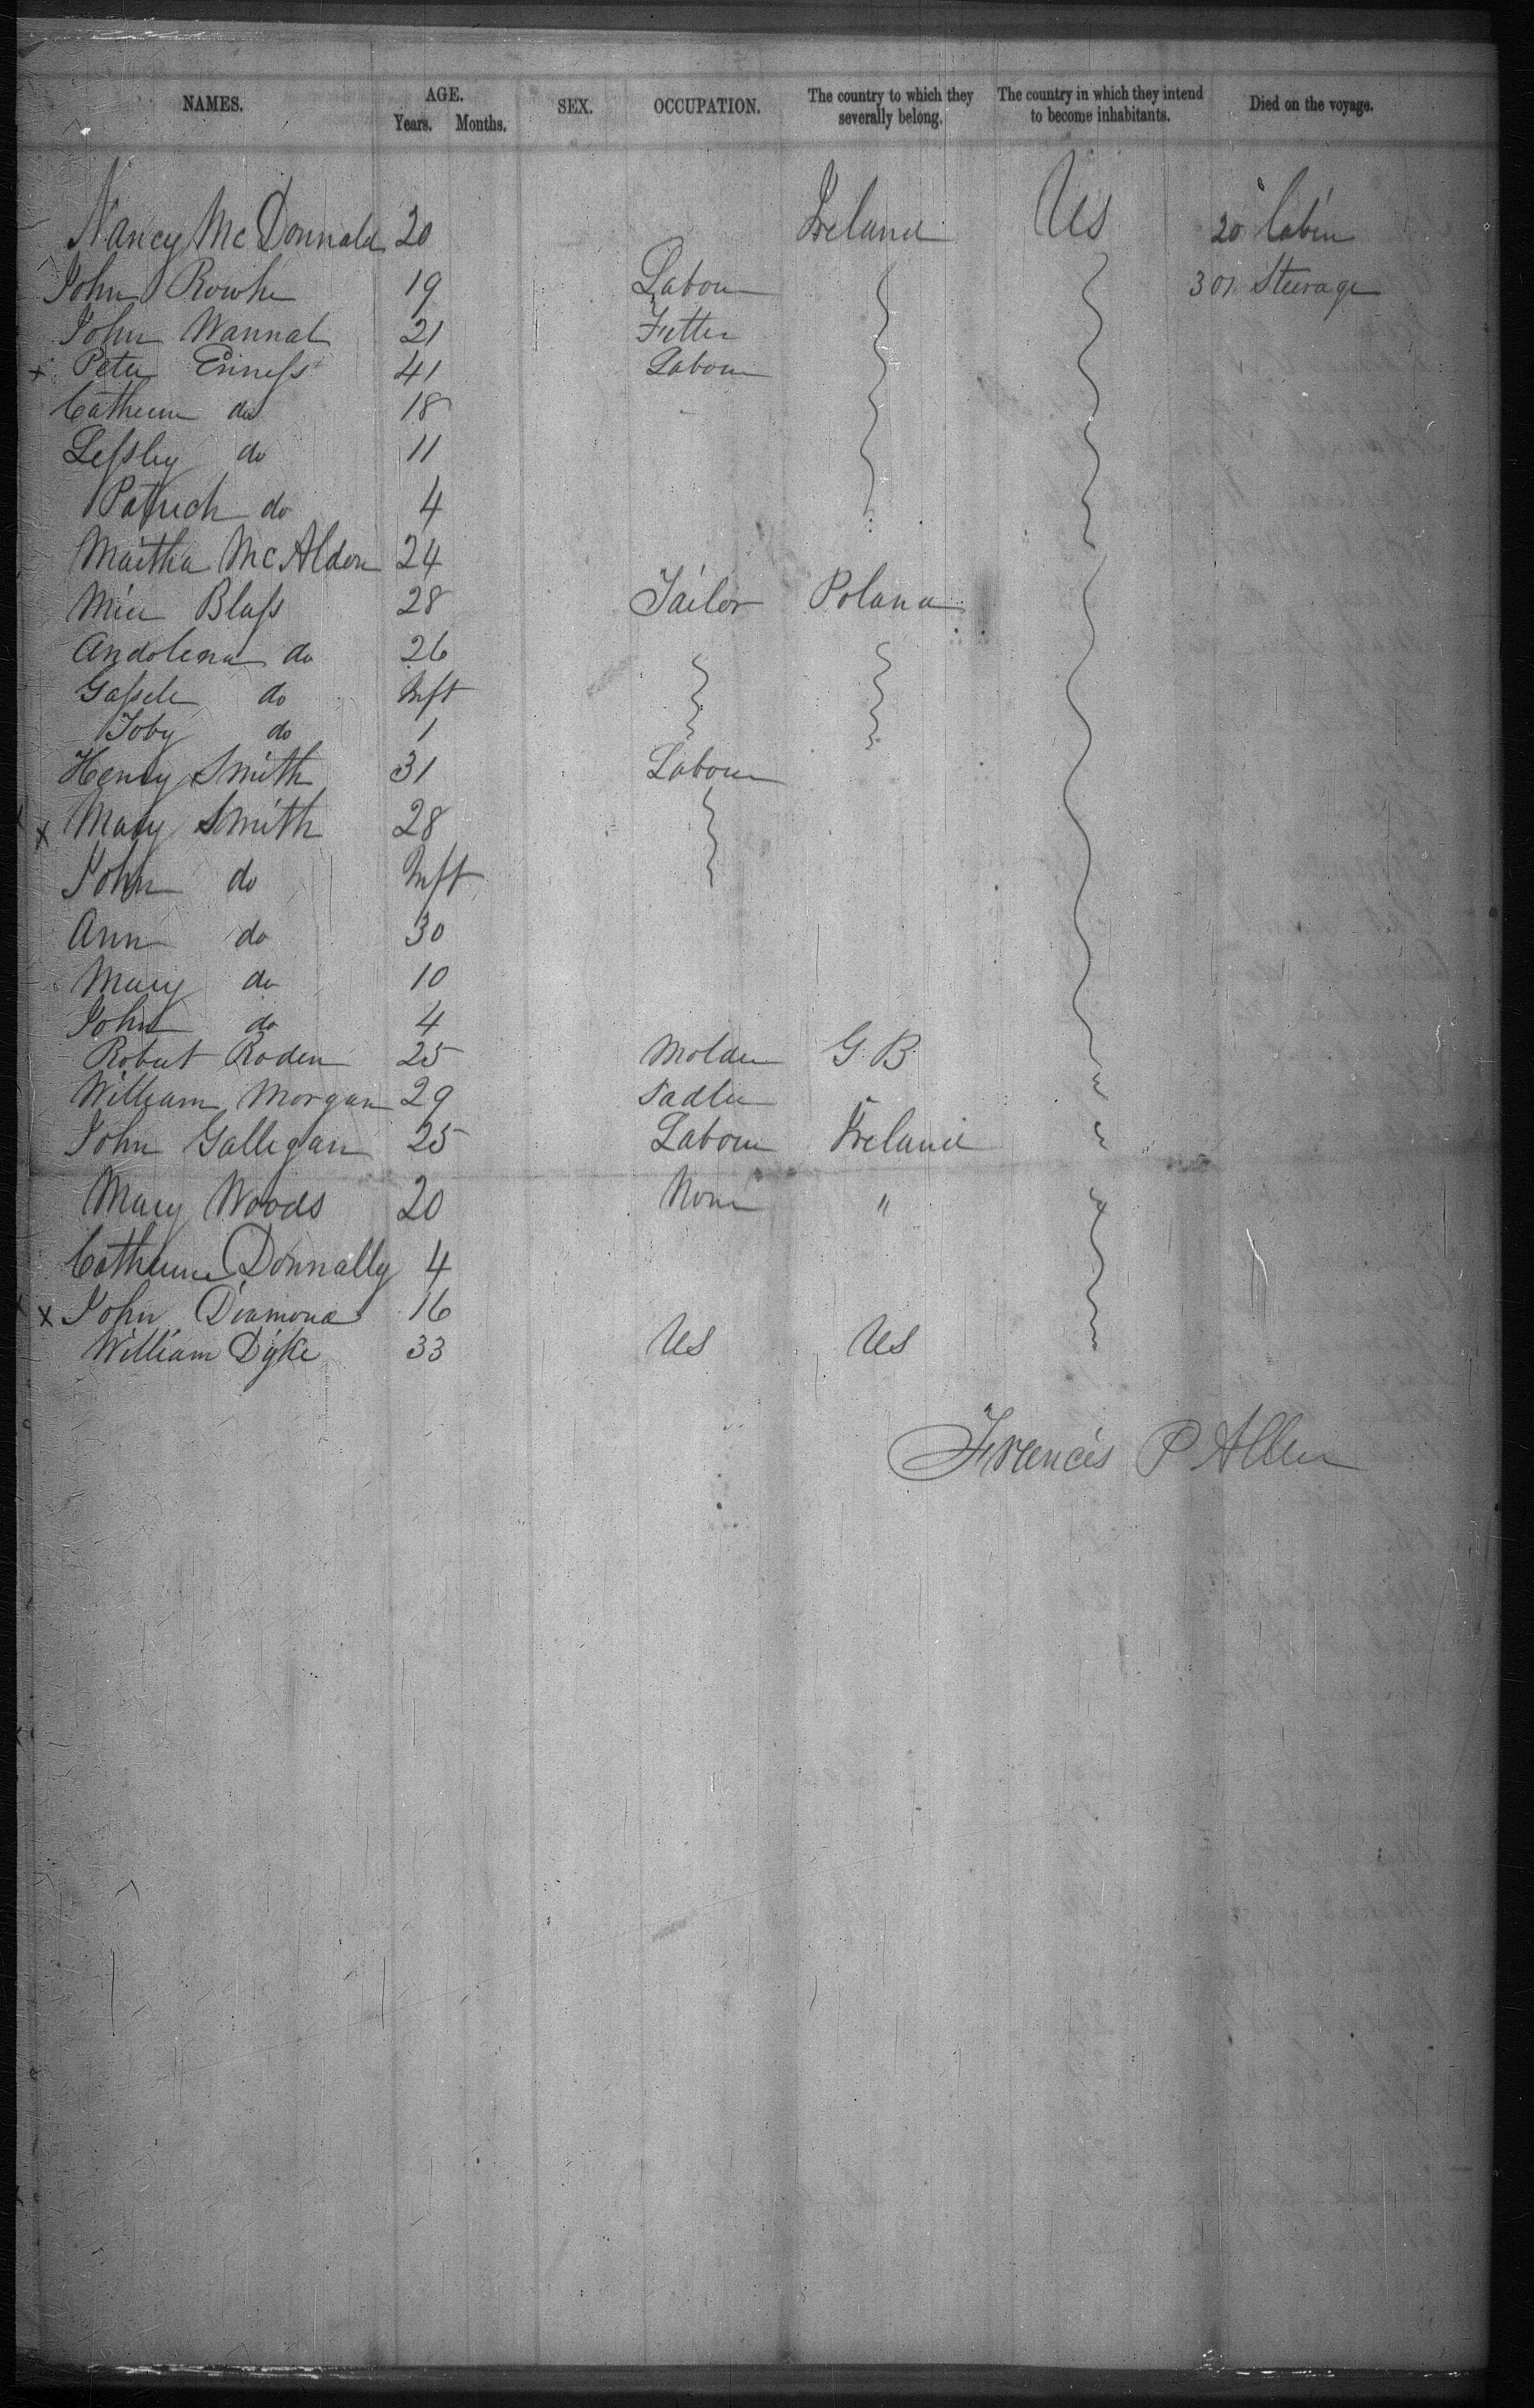 NAMES. AGE. Years. Months. SEX. OCCUPATION. The country to which they severally belong. The country in which they intend to become inhabitants. Died on the voyage.
Nancy McDonnald 20 Ireland US 20 Cabin
John Rowke 19 Labour 301 Steerage
John Wannal 21 Fitter
x Peter Enness 41 Labour
Catherine do 18
Lessley do 11
Patrick do 4
Martha McAlden 24
Blass 28 Tailor Poland
Andolena do 26
do Inft
Toby do 1
Henry Smith 31 Labour
x Mary Smith 28
John do Inft
Ann do 30
Mary do 10
John do 4
Robert Roden 25 Molder G.B.
William Morgan 29 Sadler
John Galligan 25 Labour Ireland
Mary Woods 20 None "
Catherine Donnally 4
x John Diamond 16
William Dyke 33 US US
Francis P Allen